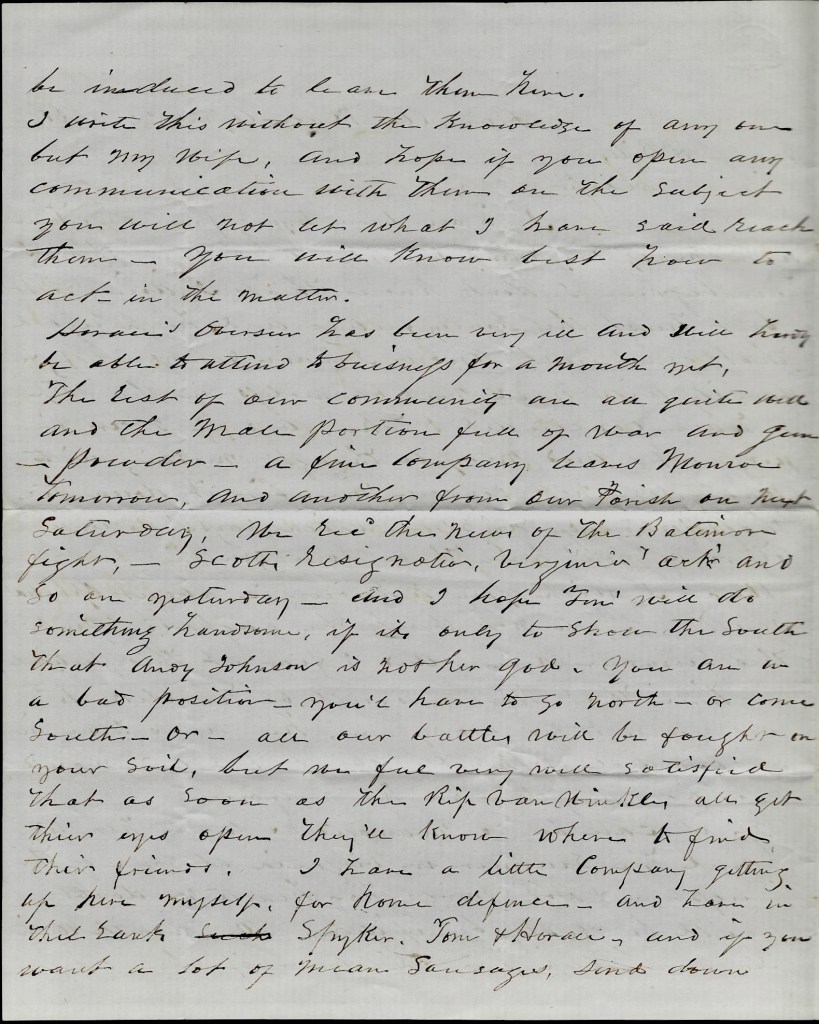 be induced to leave them here.
I write this without the Knowledge of any one
but my wife, and hope if you open any
communication with them on the subject
you will not let what I have said reach
them — you will Know best how to
act in the matter.
Horace's Overseer has been very ill and will hardly
be able to attend to buisness for a month yet,
The rest of our community are all quite well
and the Male portion full of war and gun
- powder — a fine Company leaves Monroe
tomorrow, and another from our Parish on next
Saturday, We recd the news of the Batimore
fight, — Scotts resignation, Virginia's acts and
so on yesturday — and I hope Tenn will do
something handsome, if its only to show the South
that Andy Johnson is not her god. You are in
a bad position — you'll have to go north — or come
South — or — all our battles will be fought on
your soil, but we feel very well satisfied
that as soon as the Rip Van Winkles all get
thier eyes open they'll know where to find
their friends. I have a little Company getting
up here myself, for home defence — and have in
the ranks Spyker, Tom & Horace, and if you
want a lot of mean sausages, send down